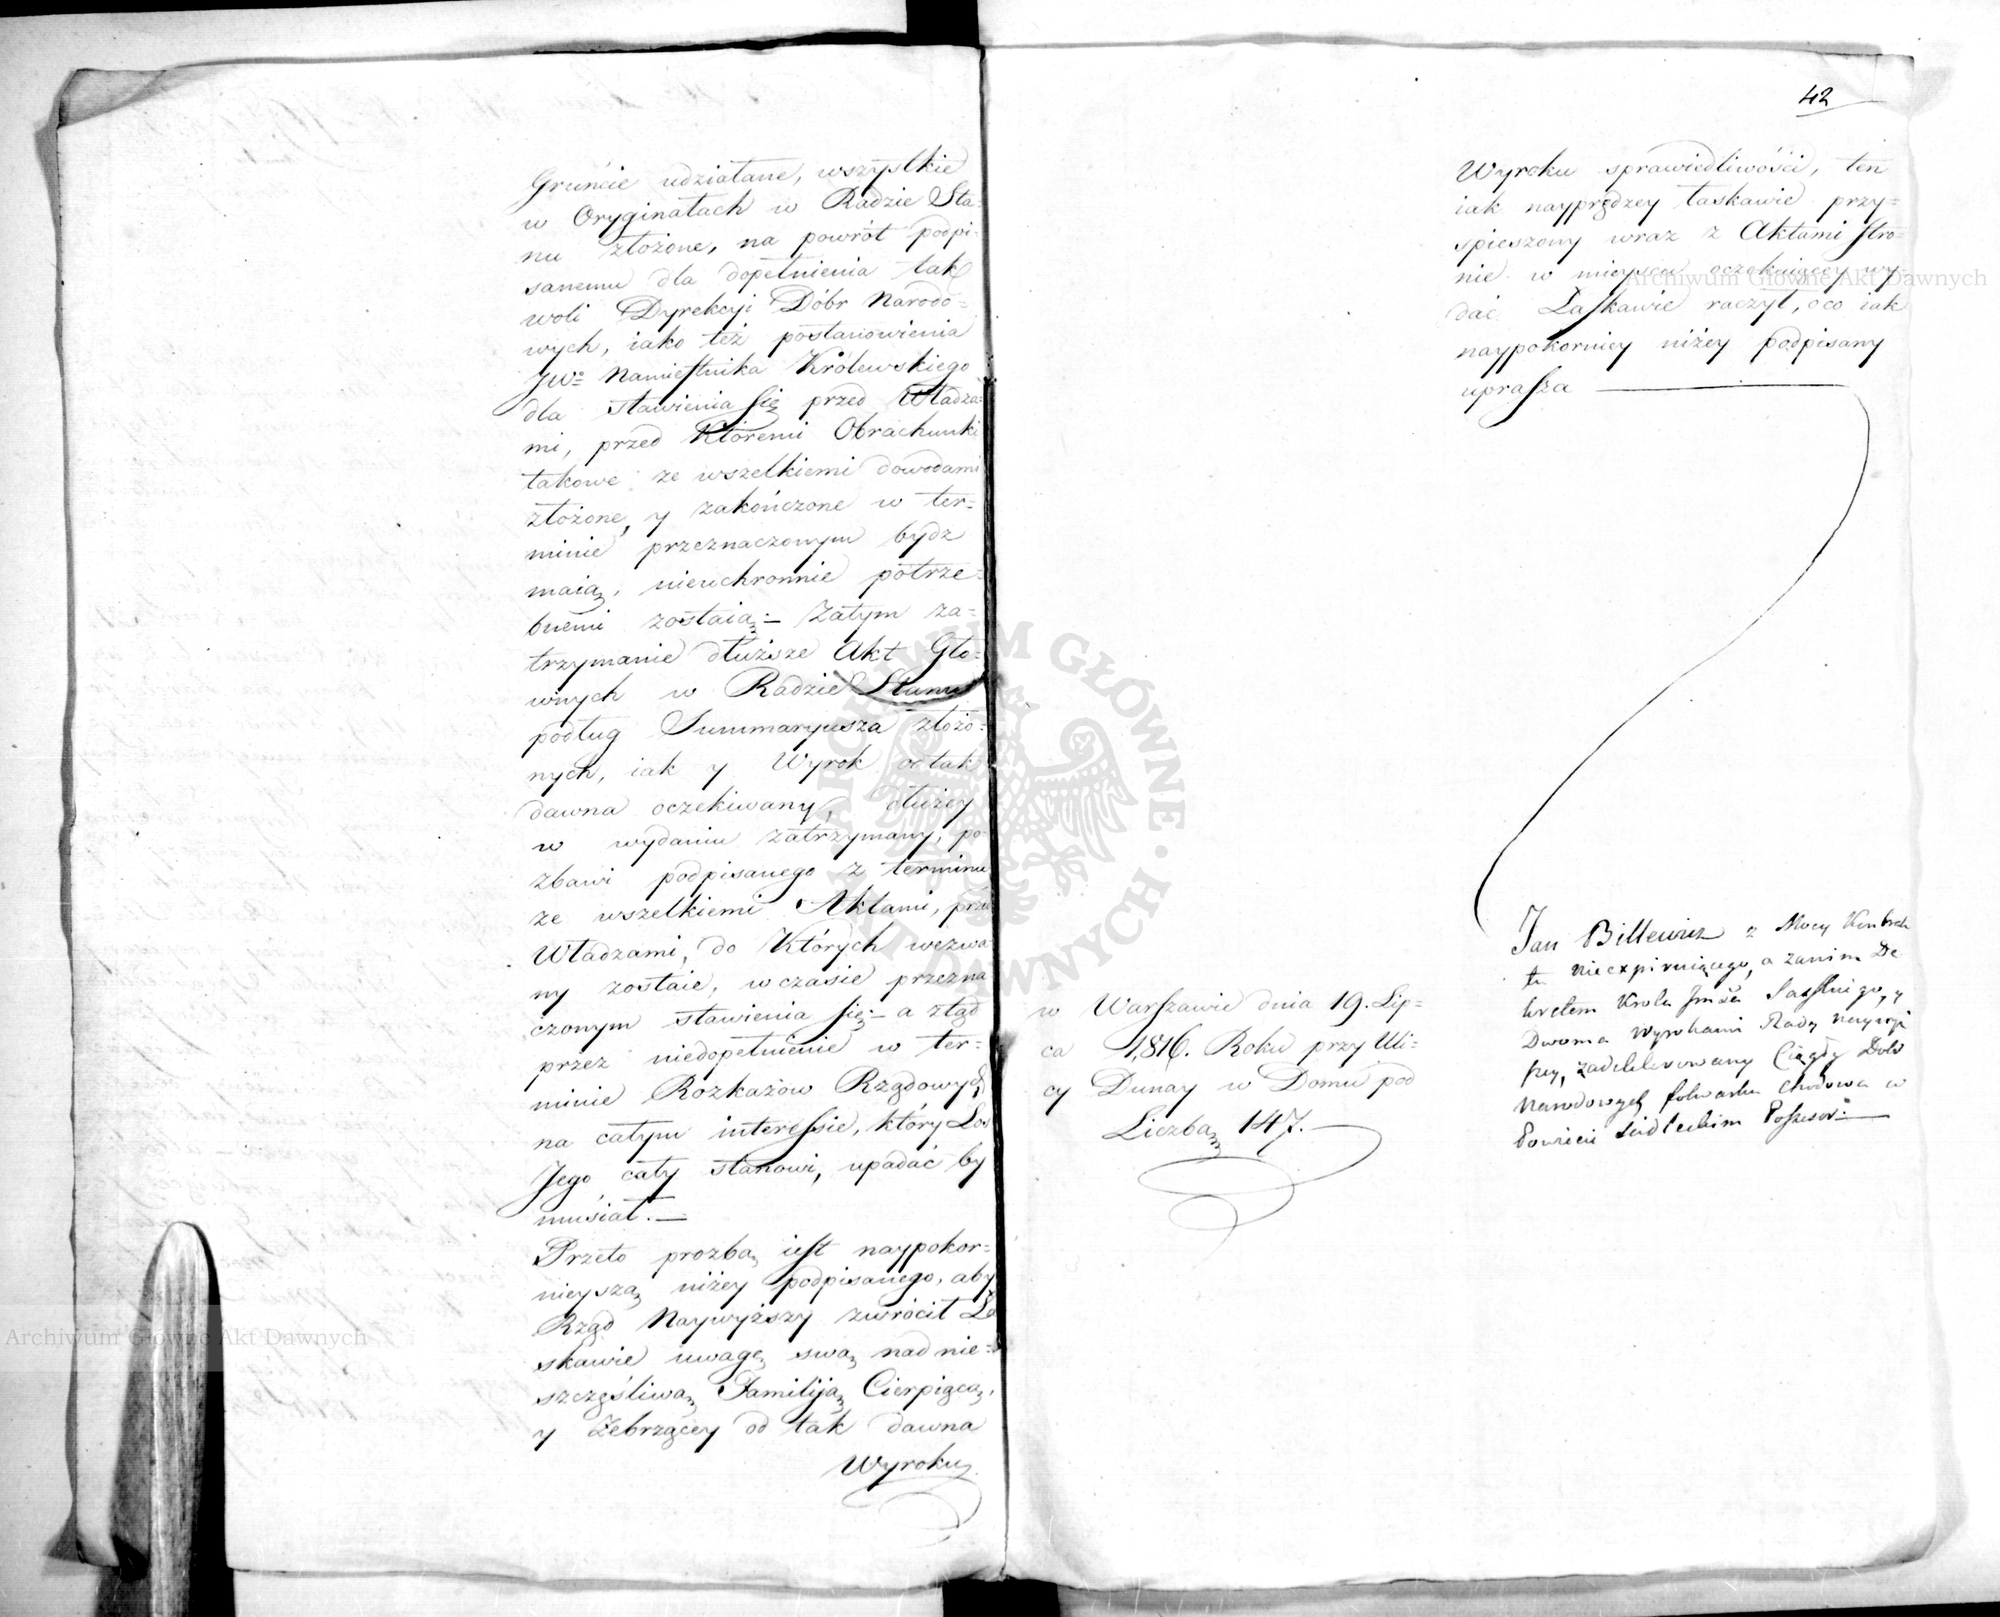 Gruncie udziałane, wszystkie
w Oryginałach w Radzie Sta=
nu złożone, na powrót podpi=
sanemu dla dopełnienia tak
woli Dyrekcyi Dóbr Narodo=
wych, iako też postanowienia
JW= Namiestnika Królewskiego
dla stawienia się przed Władza=
mi, przed Któremi Obrachunki
takowe ze wszelkiemi dowodami
złożone, y zakończone w ter=
minie przeznaczonym bydz
maią, nieuchronnie potrze=
bnemi zostaią – Zatym za=
trzymanie dłuższe Akt Gło=
wnych w Radzie Stanu
podług Summaryusza złożo=
nych, iak y Wyrok od tak
dawna oczekiwany, dłużey
w wydaniu zatrzymany, po=
zbawi podpisanego z terminu
ze wszelkiemi Aktami, przed
Władzami, do Których wezwa=
ny zostaie, w czasie przezna
czonym stawienia się – a ztąd
przez niedopełnienie w ter=
minie Rozkazow Rządowych
na całym interessie, który Los
Jego cały stanowi, upadać by
musiał. —
Przeto prozbą iest naypokor=
nieyszą niżey podpisanego, aby
Rząd Naywyższy zwrócił Ła
skawie uwagę swą nad nie=
szczęśliwą Familiją Cierpiącą,
y Żebrzącey od tak dawna
Wyroku
42
Wyroku sprawiedliwości, ten
iak nayprędzey łaskawie przy=
spieszony wraz z Aktami stro=
nie w mieyscu oczekuiącey wy=
dać Łaskawie raczył, o co iak
naypokorniey niżey podpisany
uprasza —
w Warszawie dnia 19. Lip=
ca 1,816. Roku przy Uli=
cy Dunay w Domu pod
Liczbą 147. —
Jan Billewicz z Mocy Kontrak
tu nieexpiruiącego, a zanim De
kretem Krola Saskiego, y
Dwoma Wyrokami Rady
Dobr
Narodowych folwarku Chodowa w
Powiecie Siedleckim Possesor —
Archiwum Główne Akt Dawnych
Archiwum Główne Akt Dawnych
ARCHIWUM GŁÓWNE · AKT DAWNYCH ·